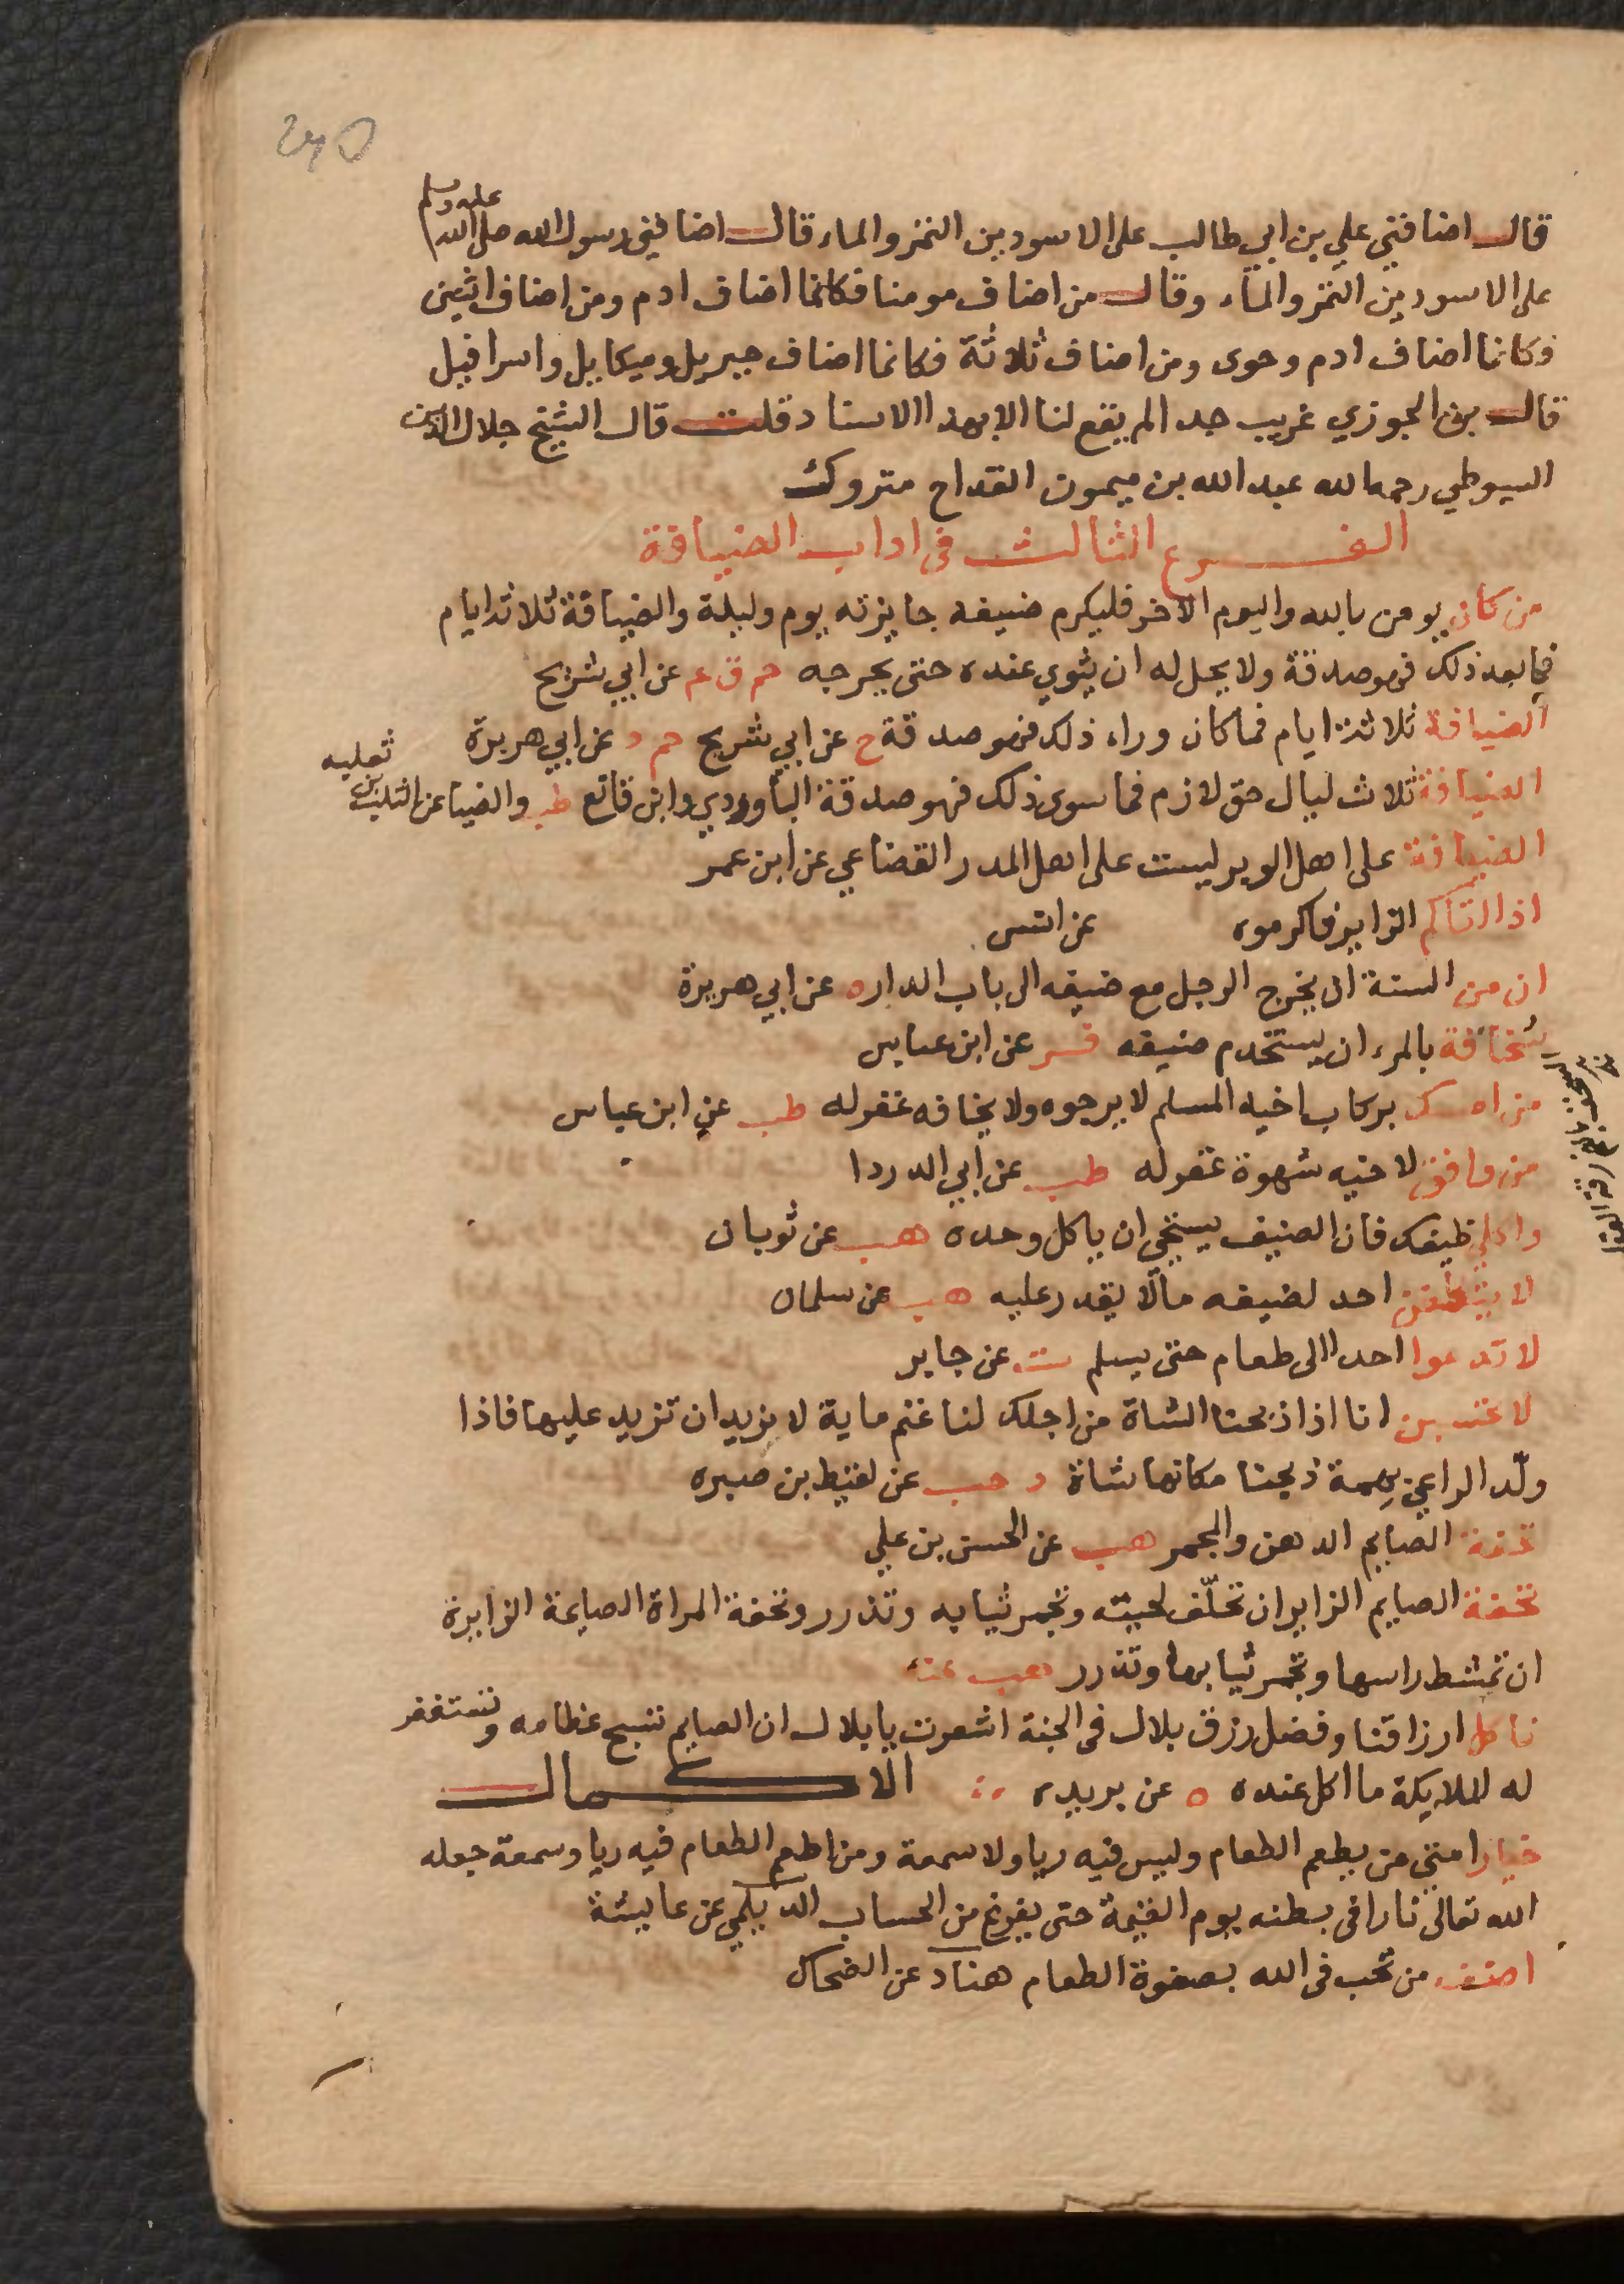 240
قال اضافني علي بن ابي طالب على الاسودين التمر والماء قال اضافني رسول الله صلى الله عليه وسلم
على الاسودين التمر والماء وقال من اضاف مومنا فكانما اضاف ادم ومن اضاف اثنين
فكانما اضاف ادم وحوى ومن اضاف ثلاثة فكانما اضاف جبريل وميكايل واسرافيل
قال بن الجوزي غريب جدا لم يقع لنا الا بهذا الاسناد قلت قال الشيخ جلال الدين
السيوطي رحمه الله عبد الله بن ميمون القداح متروك
الفرع الثالث فى اداب الضيافة
من كان يومن بالله واليوم الاخر فليكرم ضيفه جايزته يوم وليلة والضيافة ثلاثة ايام
فما بعد ذلك فهو صدقة ولا يحل له ان يثوي عنده حتى يحرجه حم ق عم عن ابي شريح
الضيافة ثلاثة ايام فما كان وراء ذلك فهو صدقة خ عن ابي شريح حم د عن ابي هريرة
الضيافة ثلاث ليال حق لازم فما سوى ذلك فهو صدقة الباوردي وابن قانع طب والضيا عن التلب بن ثعلبه
الضيافة على اهل الوبر ليست على اهل المدر القضاعي عن ابن عمر
اذا اتاكم الزاير فاكرموه عن انس
ان من السنة ان يخرج الرجل مع ضيفه الى باب الدار ه عن ابي هريرة
سخافة بالمرء ان يستخدم ضيفه فر عن ابن عباس
من امسك بركاب اخيه المسلم لا يرجوه ولا يخافه غفر له طب عن ابن عباس
من وافق لاخيه شهوة غفر له طب عن ابي الدردا
واكلي ظيفك فان الضيف يستحي ان ياكل وحده هب عن ثوبان
لا يتكلفن احد لضيفه مالا يقدر عليه هب عن سلمان
لا تدعوا احدا الى طعام حتى يسلم ت عن جابر
لا تحسبن انا اذا ذبحنا الشاة من اجلك لنا غنم ماية لا نريد ان تزيد عليها فاذا
ولّد الراعي بهمة ذبحنا مكانها شاة د حب عن لقيط بن صبره
تحفة الصايم الدهن والمجمر هب عن الحسن بن علي
تحفة الصايم الزاير ان تغلّف لحيته وتجمر ثيابه وتذرر وتحفة المراة الصايمة الزايرة
ان تمشط راسها وتجمر ثيابها وتذرر هب عنه
ناكل ارزاقنا وفضل رزق بلال فى الجنة اشعرت يا بلال ان الصايم تسبح عظامه وتستغفر
له الملايكة ما اكل عنده ه عن بريده الاكمال
خيار امتي من يطعم الطعام وليس فيه ريا ولا سمعة ومن اطعم الطعام فيه ريا وسمعة جعله
الله تعالى نارا فى بطنه يوم القيمة حتى يفرغ من الحساب الديلمي عن عايشة
اضف من تحب فى الله بصفوة الطعام هناد عن الضحاك